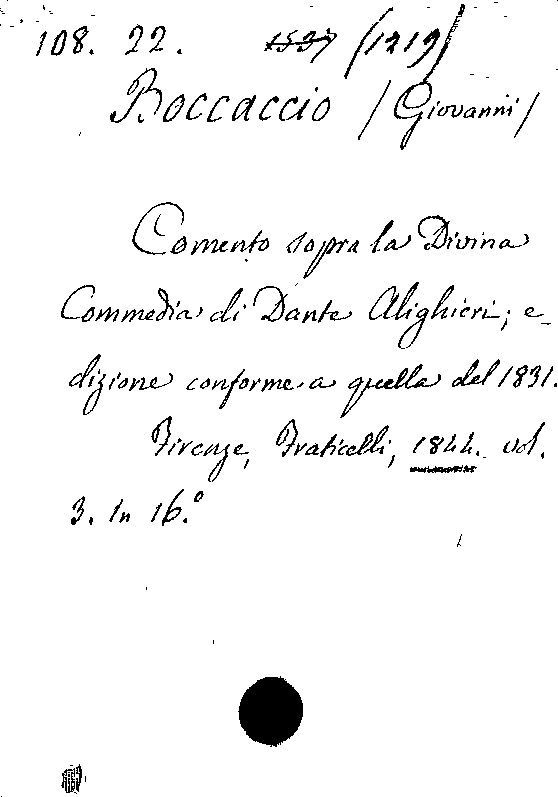 108. 22. 1537 (1219)
Boccaccio / Giovanni /
Comento sopra la Divina
Commedia di Dante Alighieri; e-
dizione conforme a quella del 1831.
Firenze, Fraticelli, 1844. vol.
3. in 16.º